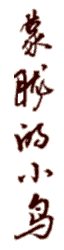 蒙眬的小鸟